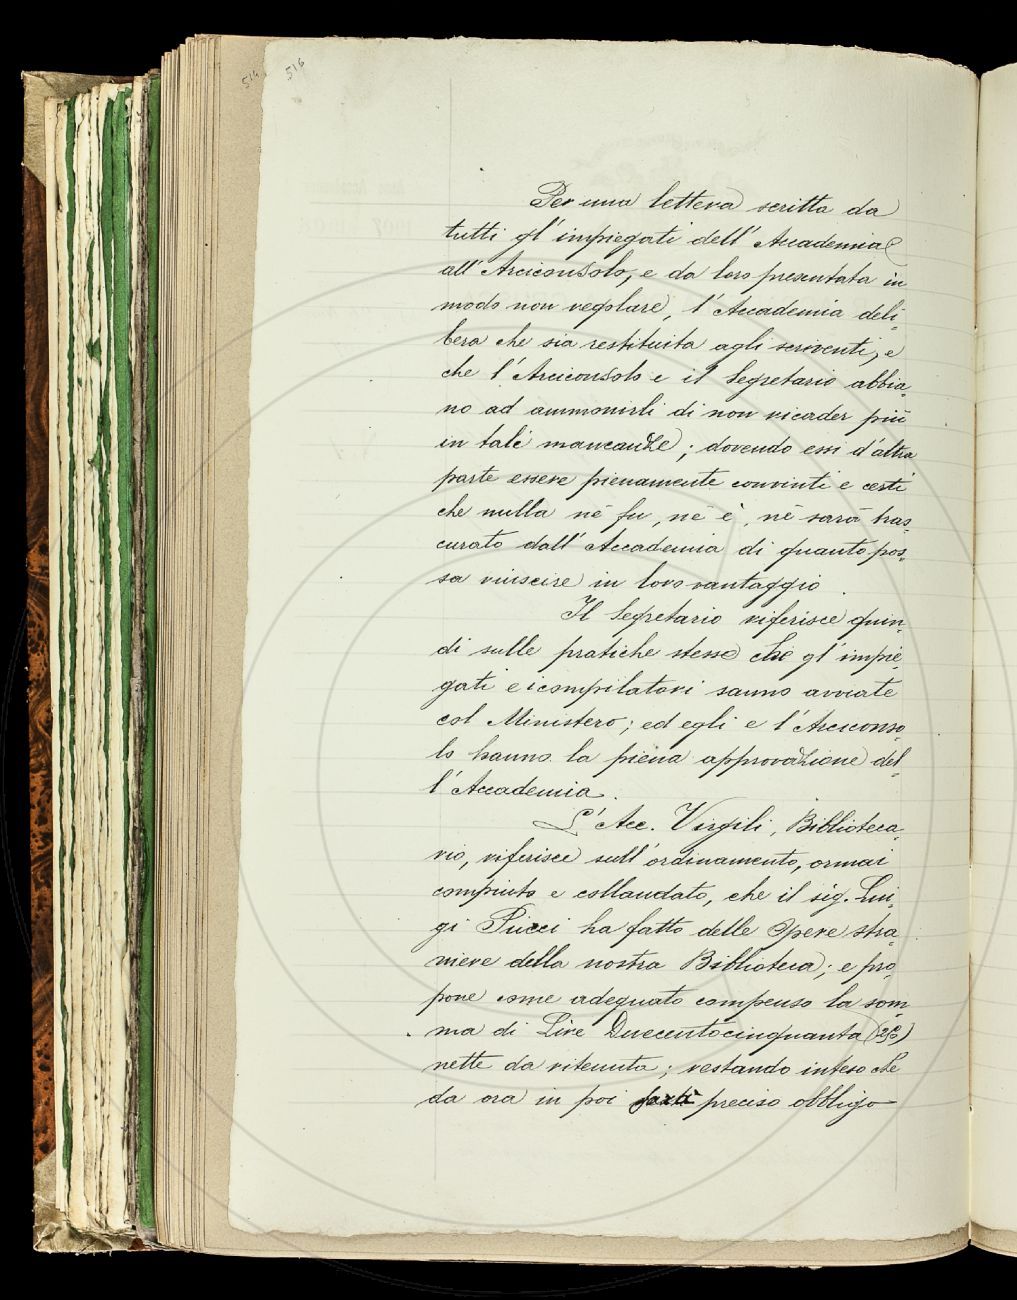 514 516
Per una lettera scritta da
tutti gl'impiegati dell'Accademia
all'Arciconsolo, e da loro presentata in
modo non regolare, l'Accademia deli-
bera che sia restituita agli scriventi, e
che l'Arciconsolo e il Segretario abbia-
no ad ammonirli di non ricader più
in tali mancanze; dovendo essi d'altra
parte essere pienamente convinti e certi
che nulla nè fu, nè è, nè sarà tras-
curato dall'Accademia di quanto pos-
sa riuscire in loro vantaggio.
Il Segretario riferisce quin-
di sulle pratiche stesse che gl'impie-
gati e i compilatori sanno avviate
col Ministero; ed egli e l'Arciconso-
lo hanno la piena approvazione del-
l'Accademia.
L'Acc. Virgili, Biblioteca-
rio, riferisce sull'ordinamento, ormai
compiuto e collaudato, che il sig. Lui-
gi Pucci ha fatto delle Opere stra-
niere della nostra Biblioteca; e pro-
pone come adeguato compenso la som-
ma di Lire Duecentocinquanta (250)
nette da ritenuta; restando inteso che
da ora in poi sarà preciso obbligo